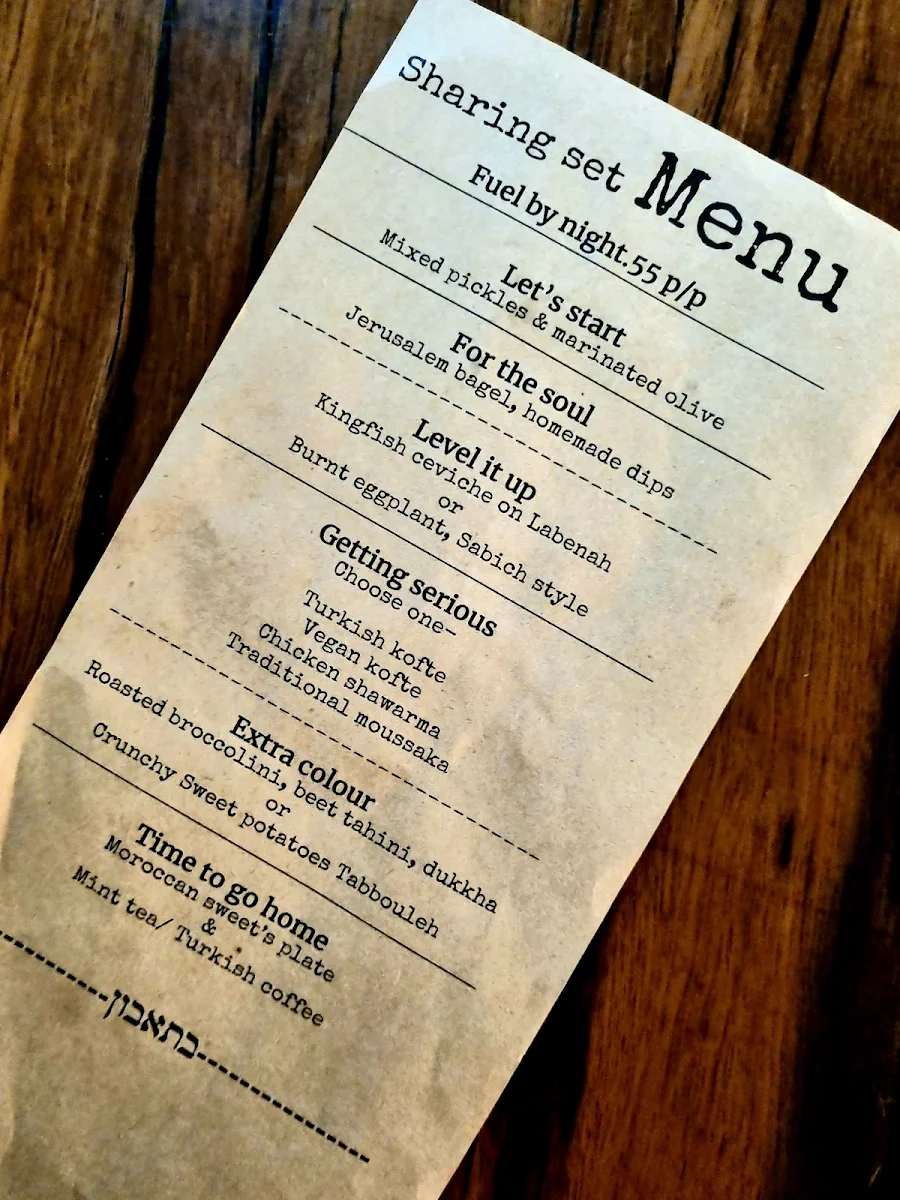 Sharing set Menu
Fuel by night.55 p/p
Let's start
Mixed pickles & marinated olive
For the soul
Jerusalem bagel, homemade dips
Level it up
Kingfish ceviche on Labenah
or
Burnt eggplant, Sabich style
Getting serious
Choose one-
Turkish kofte
Vegan kofte
Chicken shawarma
Traditional moussaka
Extra colour
Roasted broccolini, beet tahini, dukkha
or
Crunchy Sweet potatoes Tabbouleh
Time to go home
Moroccan sweet's plate
&
Mint tea/ Turkish coffee
בתאבון